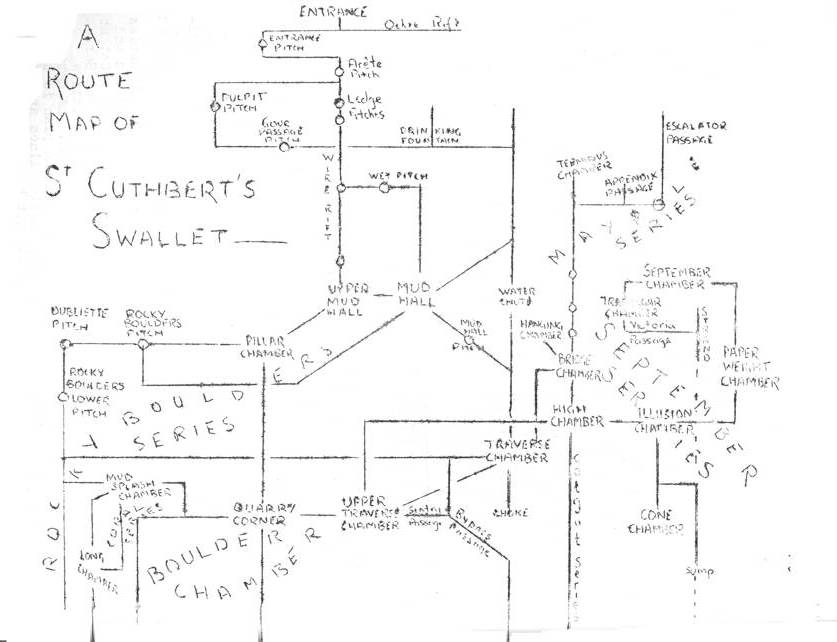 A
ROUTE
MAP OF
ST CUTHBERT'S
SWALLET
ENTRANCE
Ochre Rift
ENTRANCE
PITCH
Arête
Pitch
PULPIT
PITCH
Ledge
Pitches
GOUR
PASSAGE
PITCH
DRINKING
FOUNTAIN
WIRE RIFT
WET PITCH
ESCALATOR
PASSAGE
TERMINUS
CHAMBER
APPENDIX
PASSAGE
MAY SERIES
UPPER
MUD
HALL
MUD
HALL
WATER
CHUTE
SEPTEMBER
CHAMBER
TRAFALGAR
CHAMBER
Victoria
Passage
STRAND
OUBLIETTE
PITCH
ROCKY
BOULDERS
PITCH
PILLAR
CHAMBER
MUD
HALL
PITCH
HANGING
CHAMBER
BRIDGE
CHAMBER
PAPER
WEIGHT
CHAMBER
SEPTEMBER
SERIES
ROCKY
BOULDERS
LOWER
PITCH
ROCKY BOULDERS
SERIES
HIGH
CHAMBER
ILLUSION
CHAMBER
TRAVERSE
CHAMBER
MUD
SPLASH
CHAMBER
CORAL
SERIES
QUARRY
CORNER
UPPER
TRAVERSE
CHAMBER
Sentry
Passage
Bypass
Passage
CHOKE
CONE
CHAMBER
LONG
CHAMBER
BOULDER
CHAMBER
Catgut Series
Sump